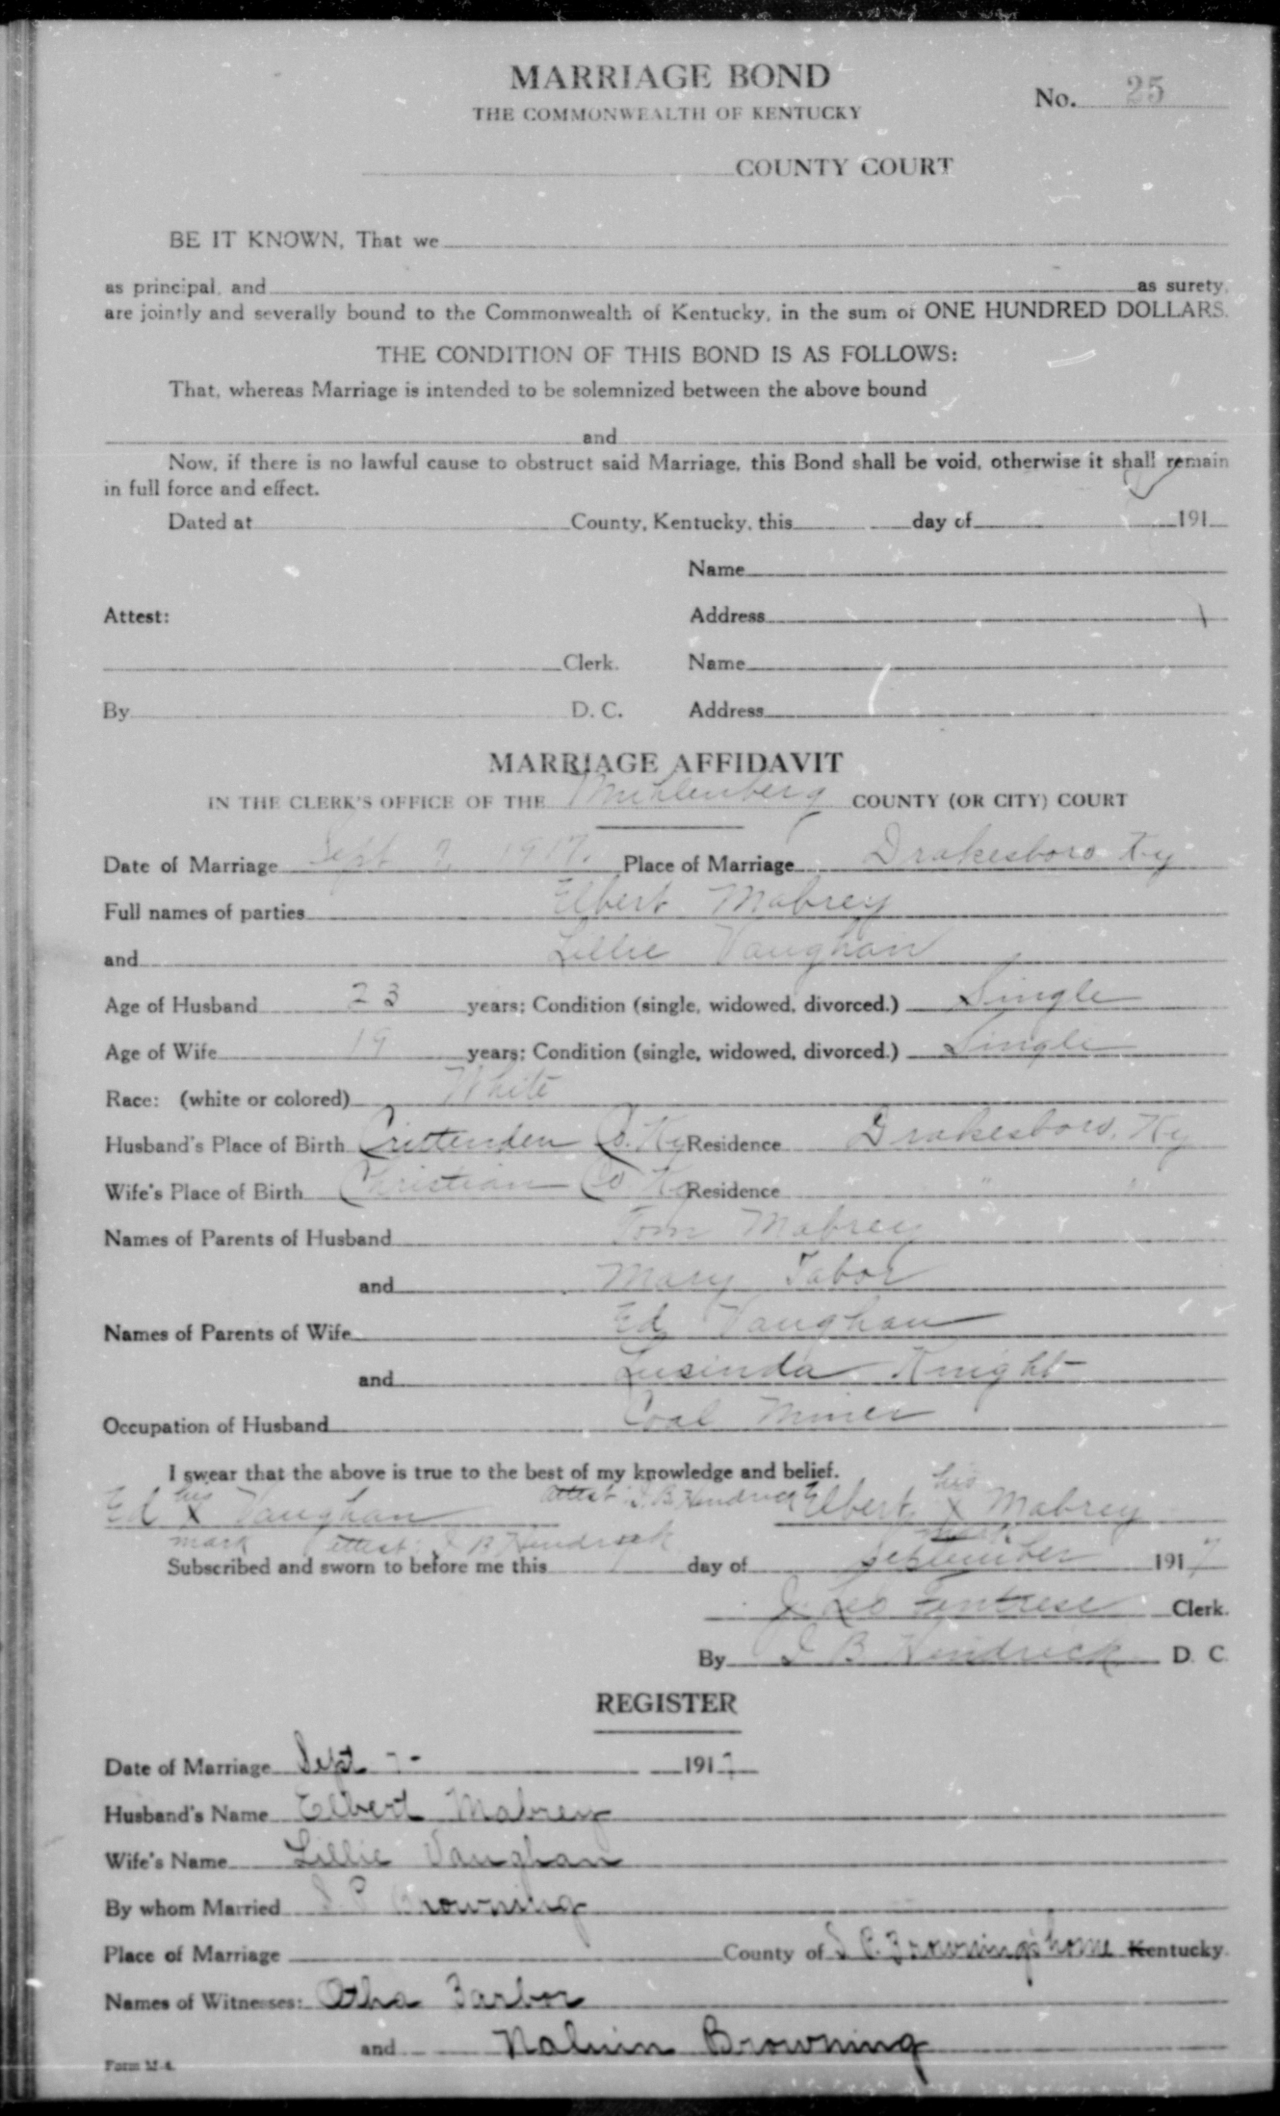 MARRIAGE BOND
No. 25
THE COMMONWEALTH OF KENTUCKY
COUNTY COURT
BE IT KNOWN, That we
as principal, and as surety,
are jointly and severally bound to the Commonwealth of Kentucky, in the sum of ONE HUNDRED DOLLARS.
THE CONDITION OF THIS BOND IS AS FOLLOWS:
That, whereas Marriage is intended to be solemnized between the above bound
and
Now, if there is no lawful cause to obstruct said Marriage, this Bond shall be void, otherwise it shall remain
in full force and effect.
Dated at County, Kentucky, this day of 191
Name
Attest: Address
Clerk. Name
By D. C. Address
MARRIAGE AFFIDAVIT
IN THE CLERK'S OFFICE OF THE Muhlenberg COUNTY (OR CITY) COURT
Date of Marriage Sept 7, 1917. Place of Marriage Drakesboro Ky
Full names of parties Elbert Mabrey
and Lillie Vaughan
Age of Husband 23 years; Condition (single, widowed, divorced.) Single
Age of Wife 19 years; Condition (single, widowed, divorced.) Single
Race: (white or colored) White
Husband's Place of Birth Crittenden Co. Ky Residence Drakesboro, Ky
Wife's Place of Birth Christian Co Ky Residence " "
Names of Parents of Husband Tom Mabrey
and Mary Tabor
Names of Parents of Wife Ed Vaughan
and Lusinda Knight
Occupation of Husband Coal Miner
I swear that the above is true to the best of my knowledge and belief.
Ed his X Vaughan Attest: J. B. Hendrick Elbert his X Mabrey
mark attest: J B Hendrick mark
Subscribed and sworn to before me this 7 day of September 1917
J. Leo Fentress Clerk.
By J B Hendrick D. C.
REGISTER
Date of Marriage Sept 7- 1917
Husband's Name Elbert Mabrey
Wife's Name Lillie Vaughan
By whom Married Browning
Place of Marriage County of Browning's home Kentucky.
Names of Witnesses: Otha Barbor
and Browning
Form M-4.